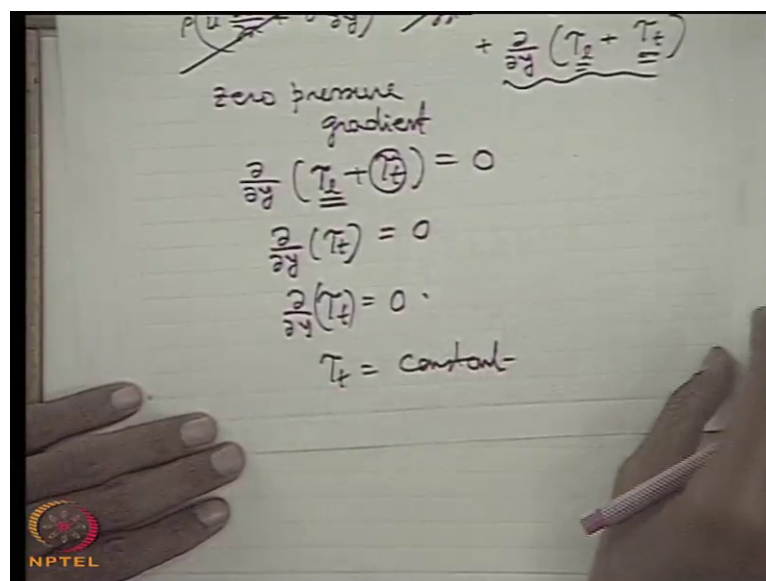 ρ(u ∂/∂x ∂y)
+ ∂/∂y (τ_l + τ_t)
zero pressure
gradient
∂/∂y (τ_l + τ_t) = 0
∂/∂y (τ_t) = 0
∂/∂y (τ_t) = 0 .
τ_t = constant
NPTEL